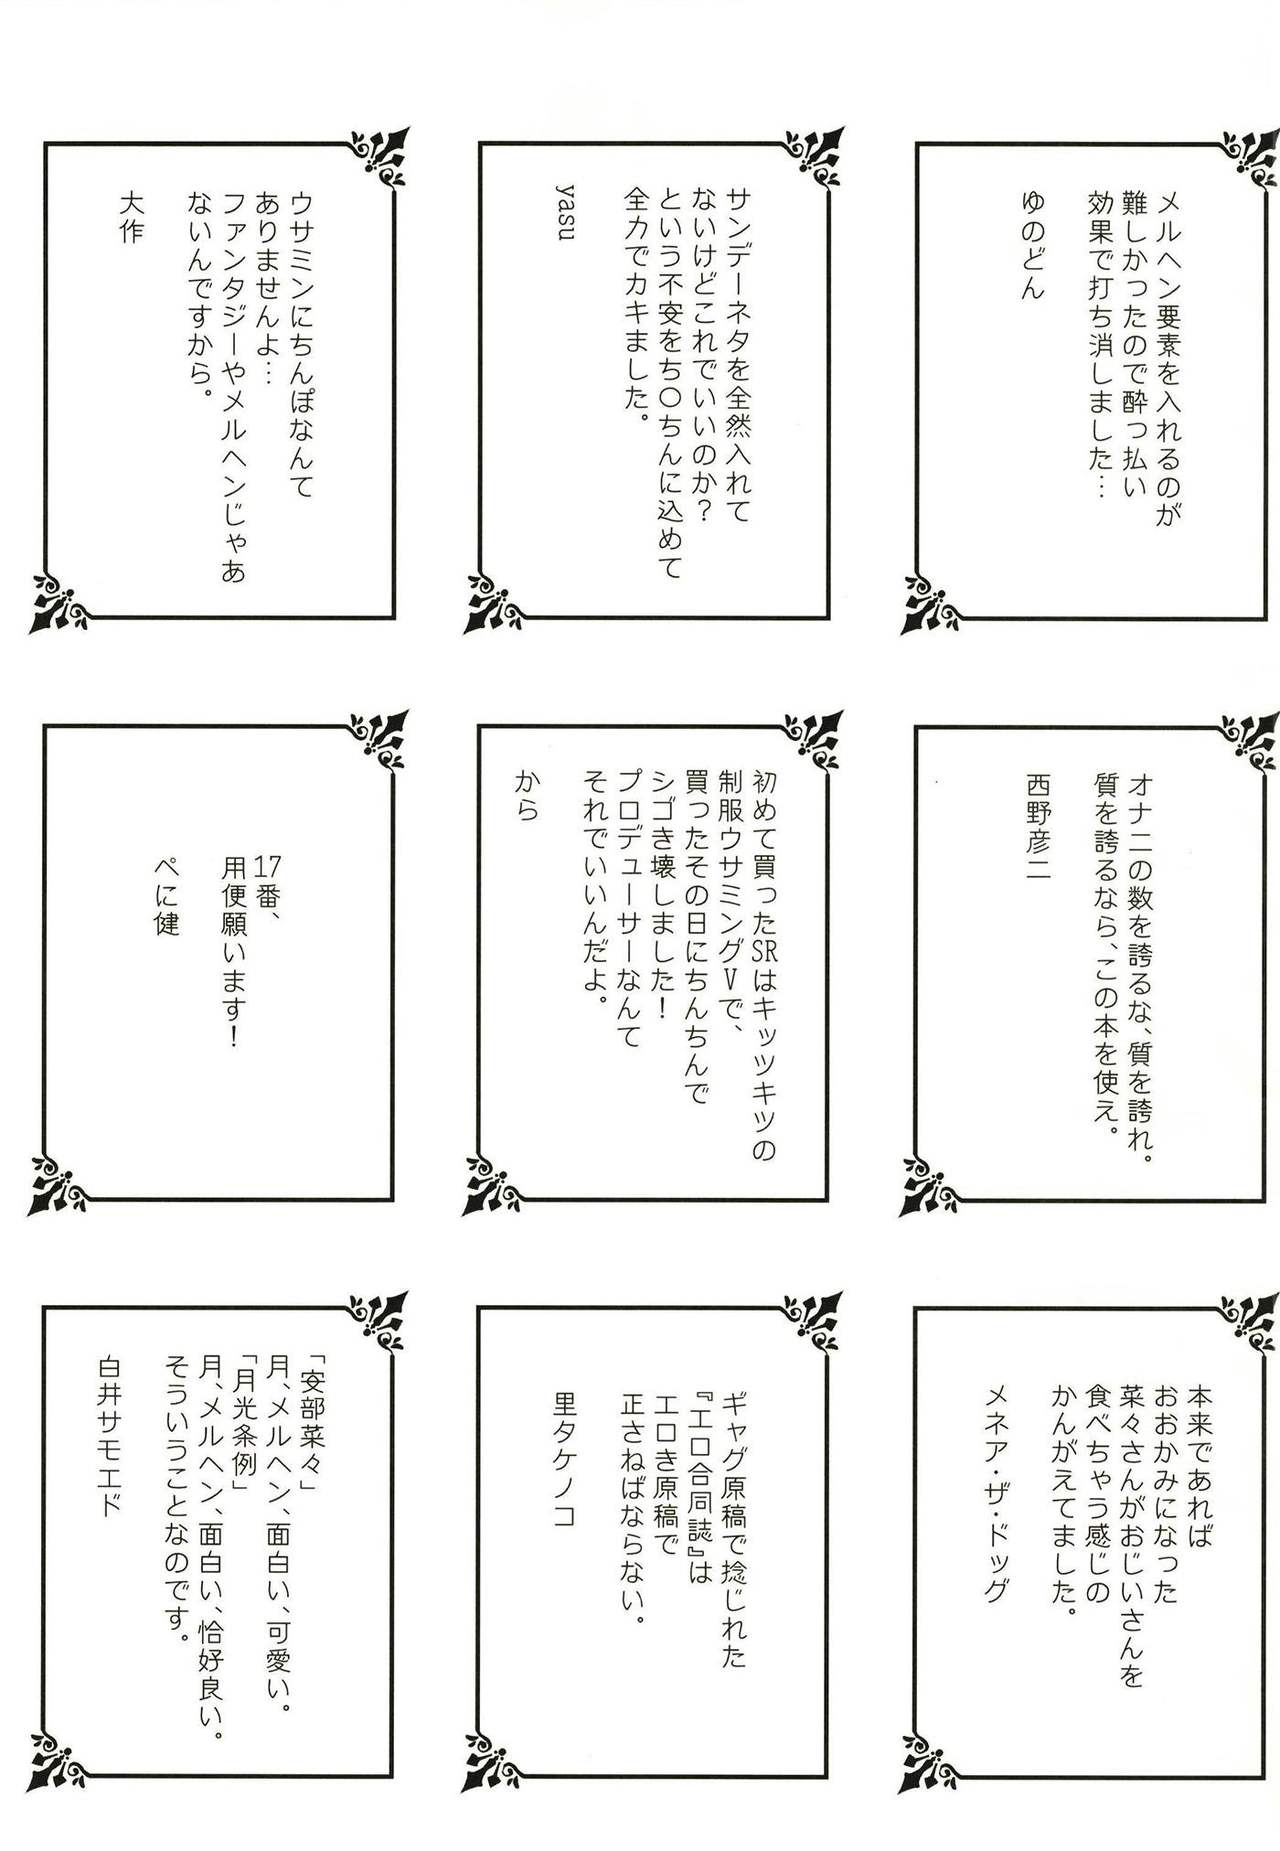 メルヘン要素を入れるのが
難しかったので酔っ払い
効果で打ち消しました…
ゆのどん
サンデーネタを全然入れて
ないけどこれでいいのか?
という不安をち〇ちんに込めて
全力でカキました。
yasu
ウサミンにちんぽなんて
ありませんよ…
ファンタジーやメルヘンじゃあ
ないんですから。
大作
オナニの数を誇るな、質を誇れ。
質を誇るなら、この本を使え。
西野彦二
初めて買ったSRはキッツキツの
制服ウサミングVで、
買ったその日にちんちんで
シゴき壊しました!
プロデューサーなんて
それでいいんだよ。
から
17番、
用便願います!
ぺに健
本来であれば
おおかみになった
菜々さんがおじいさんを
食べちゃう感じの
かんがえてました。
メネア・ザ・ドッグ
ギャグ原稿で捻じれた
『エロ合同誌』は
エロき原稿で
正さねばならない。
里タケノコ
「安部菜々」
月、メルヘン、面白い、可愛い。
「月光条例」
月、メルヘン、面白い、恰好良い。
そういうことなのです。
白井サモエド